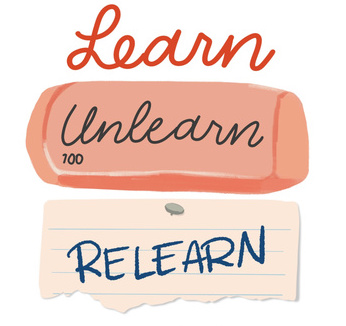 Learn
Unlearn
100
RELEARN